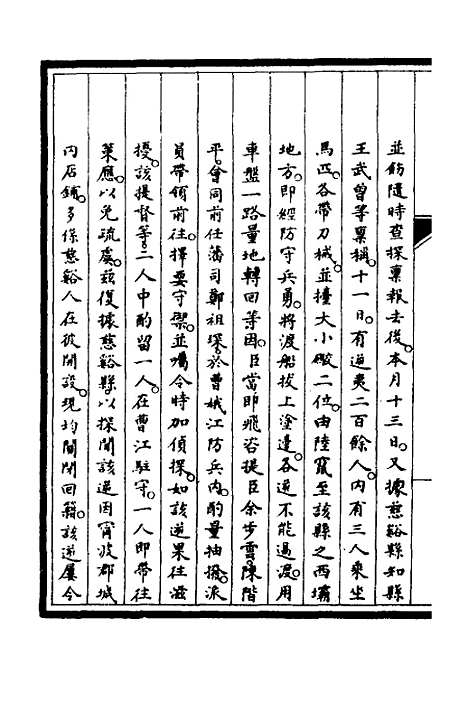 並飭隨時查探稟報去後。本月十三日。又據慈谿縣知縣
王武曾等稟稱。十一日。有逆夷二百餘人。內有三人乘坐
馬匹。各帶刀械。並擡大小礮二位。由陸竄至該縣之西壩
地方。即經防守兵勇。將渡船拔上塗邊。各逆不能過渡。用
車盤一路量地轉回等因。臣當即飛咨提臣余步雲。陳階
平。會同前任藩司鄭祖琛。於曹娥江防兵內。酌量抽撥。派
員帶領前往。擇要守禦。並囑令時加偵探。如該逆果往滋
擾。該提督等。二人中酌留一人。在曹江駐守。一人即帶往
策應。以免疏虞。茲復據慈谿縣。以探聞該逆因甯波郡城
內店鋪。多係慈谿人在彼開設。現均關閉回籍。該逆屢令